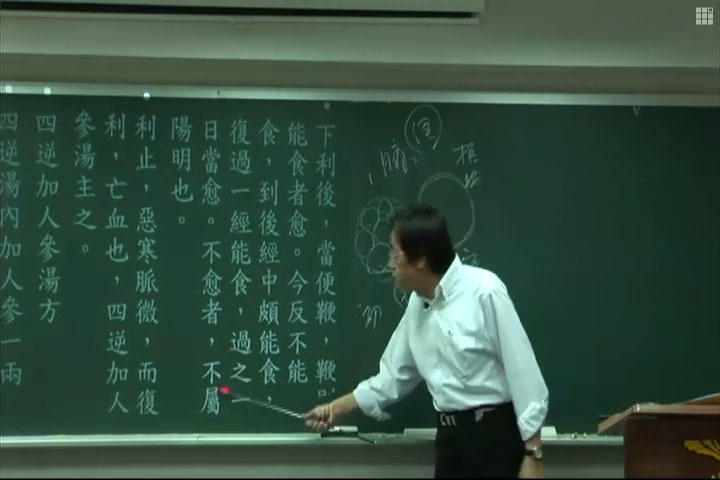 下利後，當便鞭，鞭
能食者愈。今反不能
食，到後經中頗能食，
復過一經能食，過之
日當愈。不愈者，不屬
陽明也。
利止，惡寒脈微，而復
利，亡血也，四逆加人
參湯主之。
四逆加人參湯方
四逆湯內加人參一兩